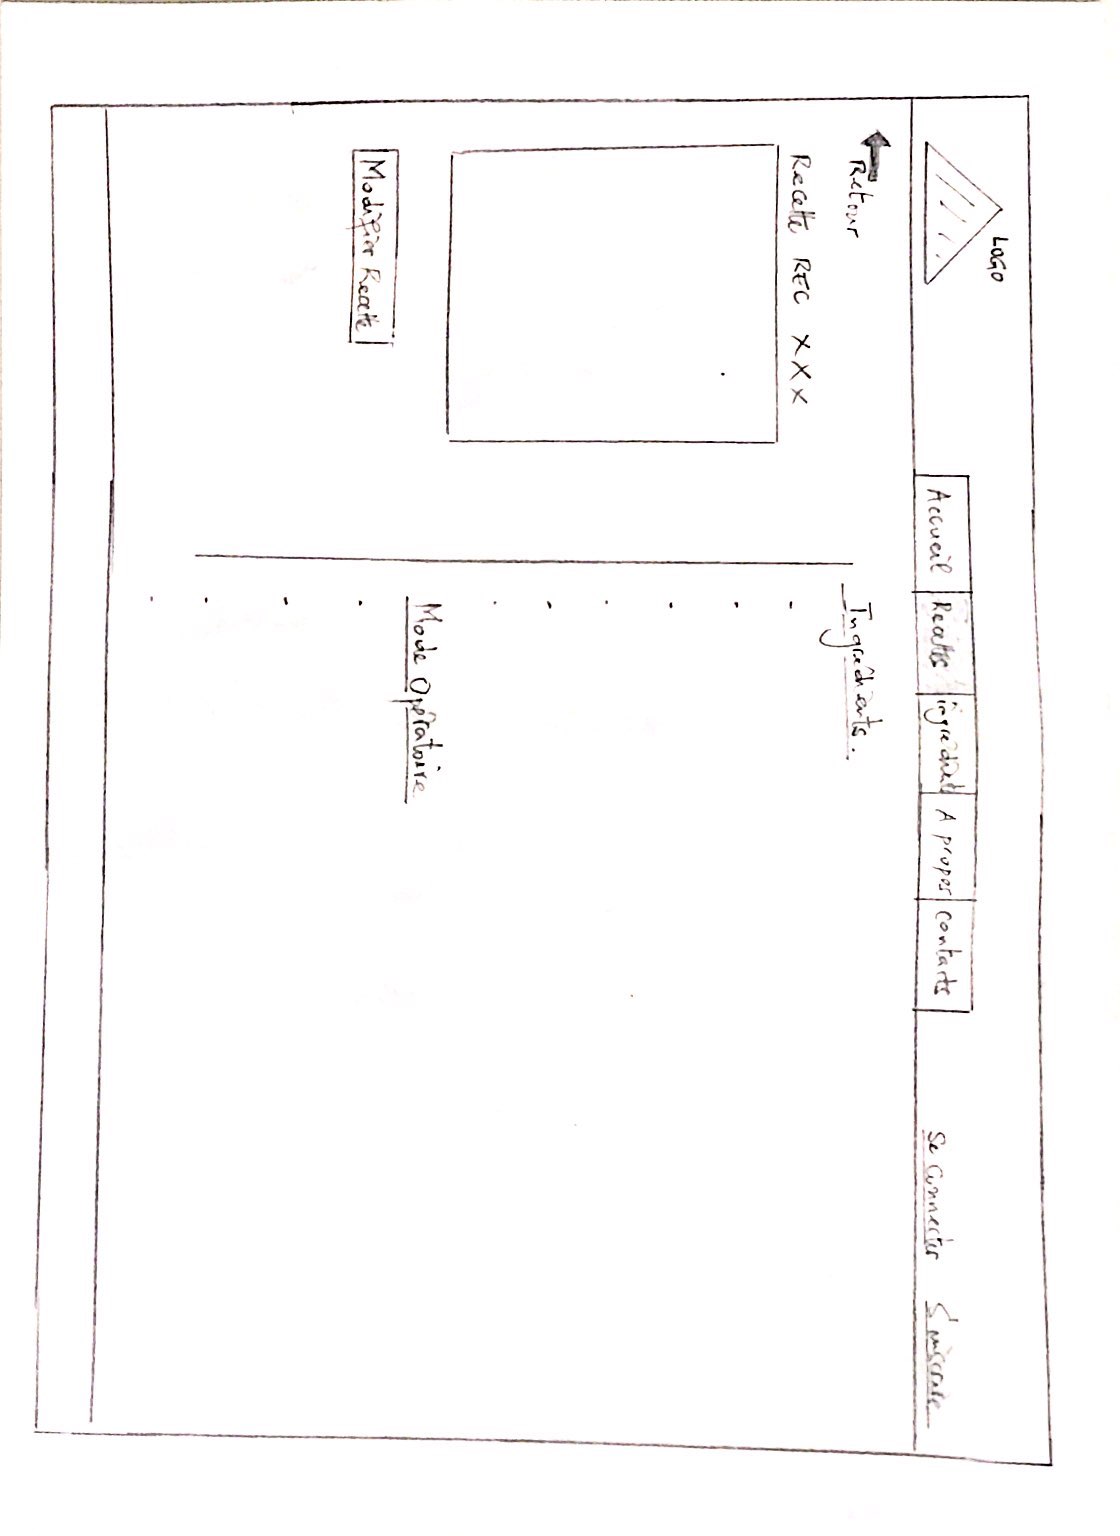 LOGO
Accueil
Recettes
ingrédients
A propos
Contacts
Se connecter
S'inscrire
Retour
Recette REC XXX
Modifier Recette
Ingrédients.
Mode Opératoire